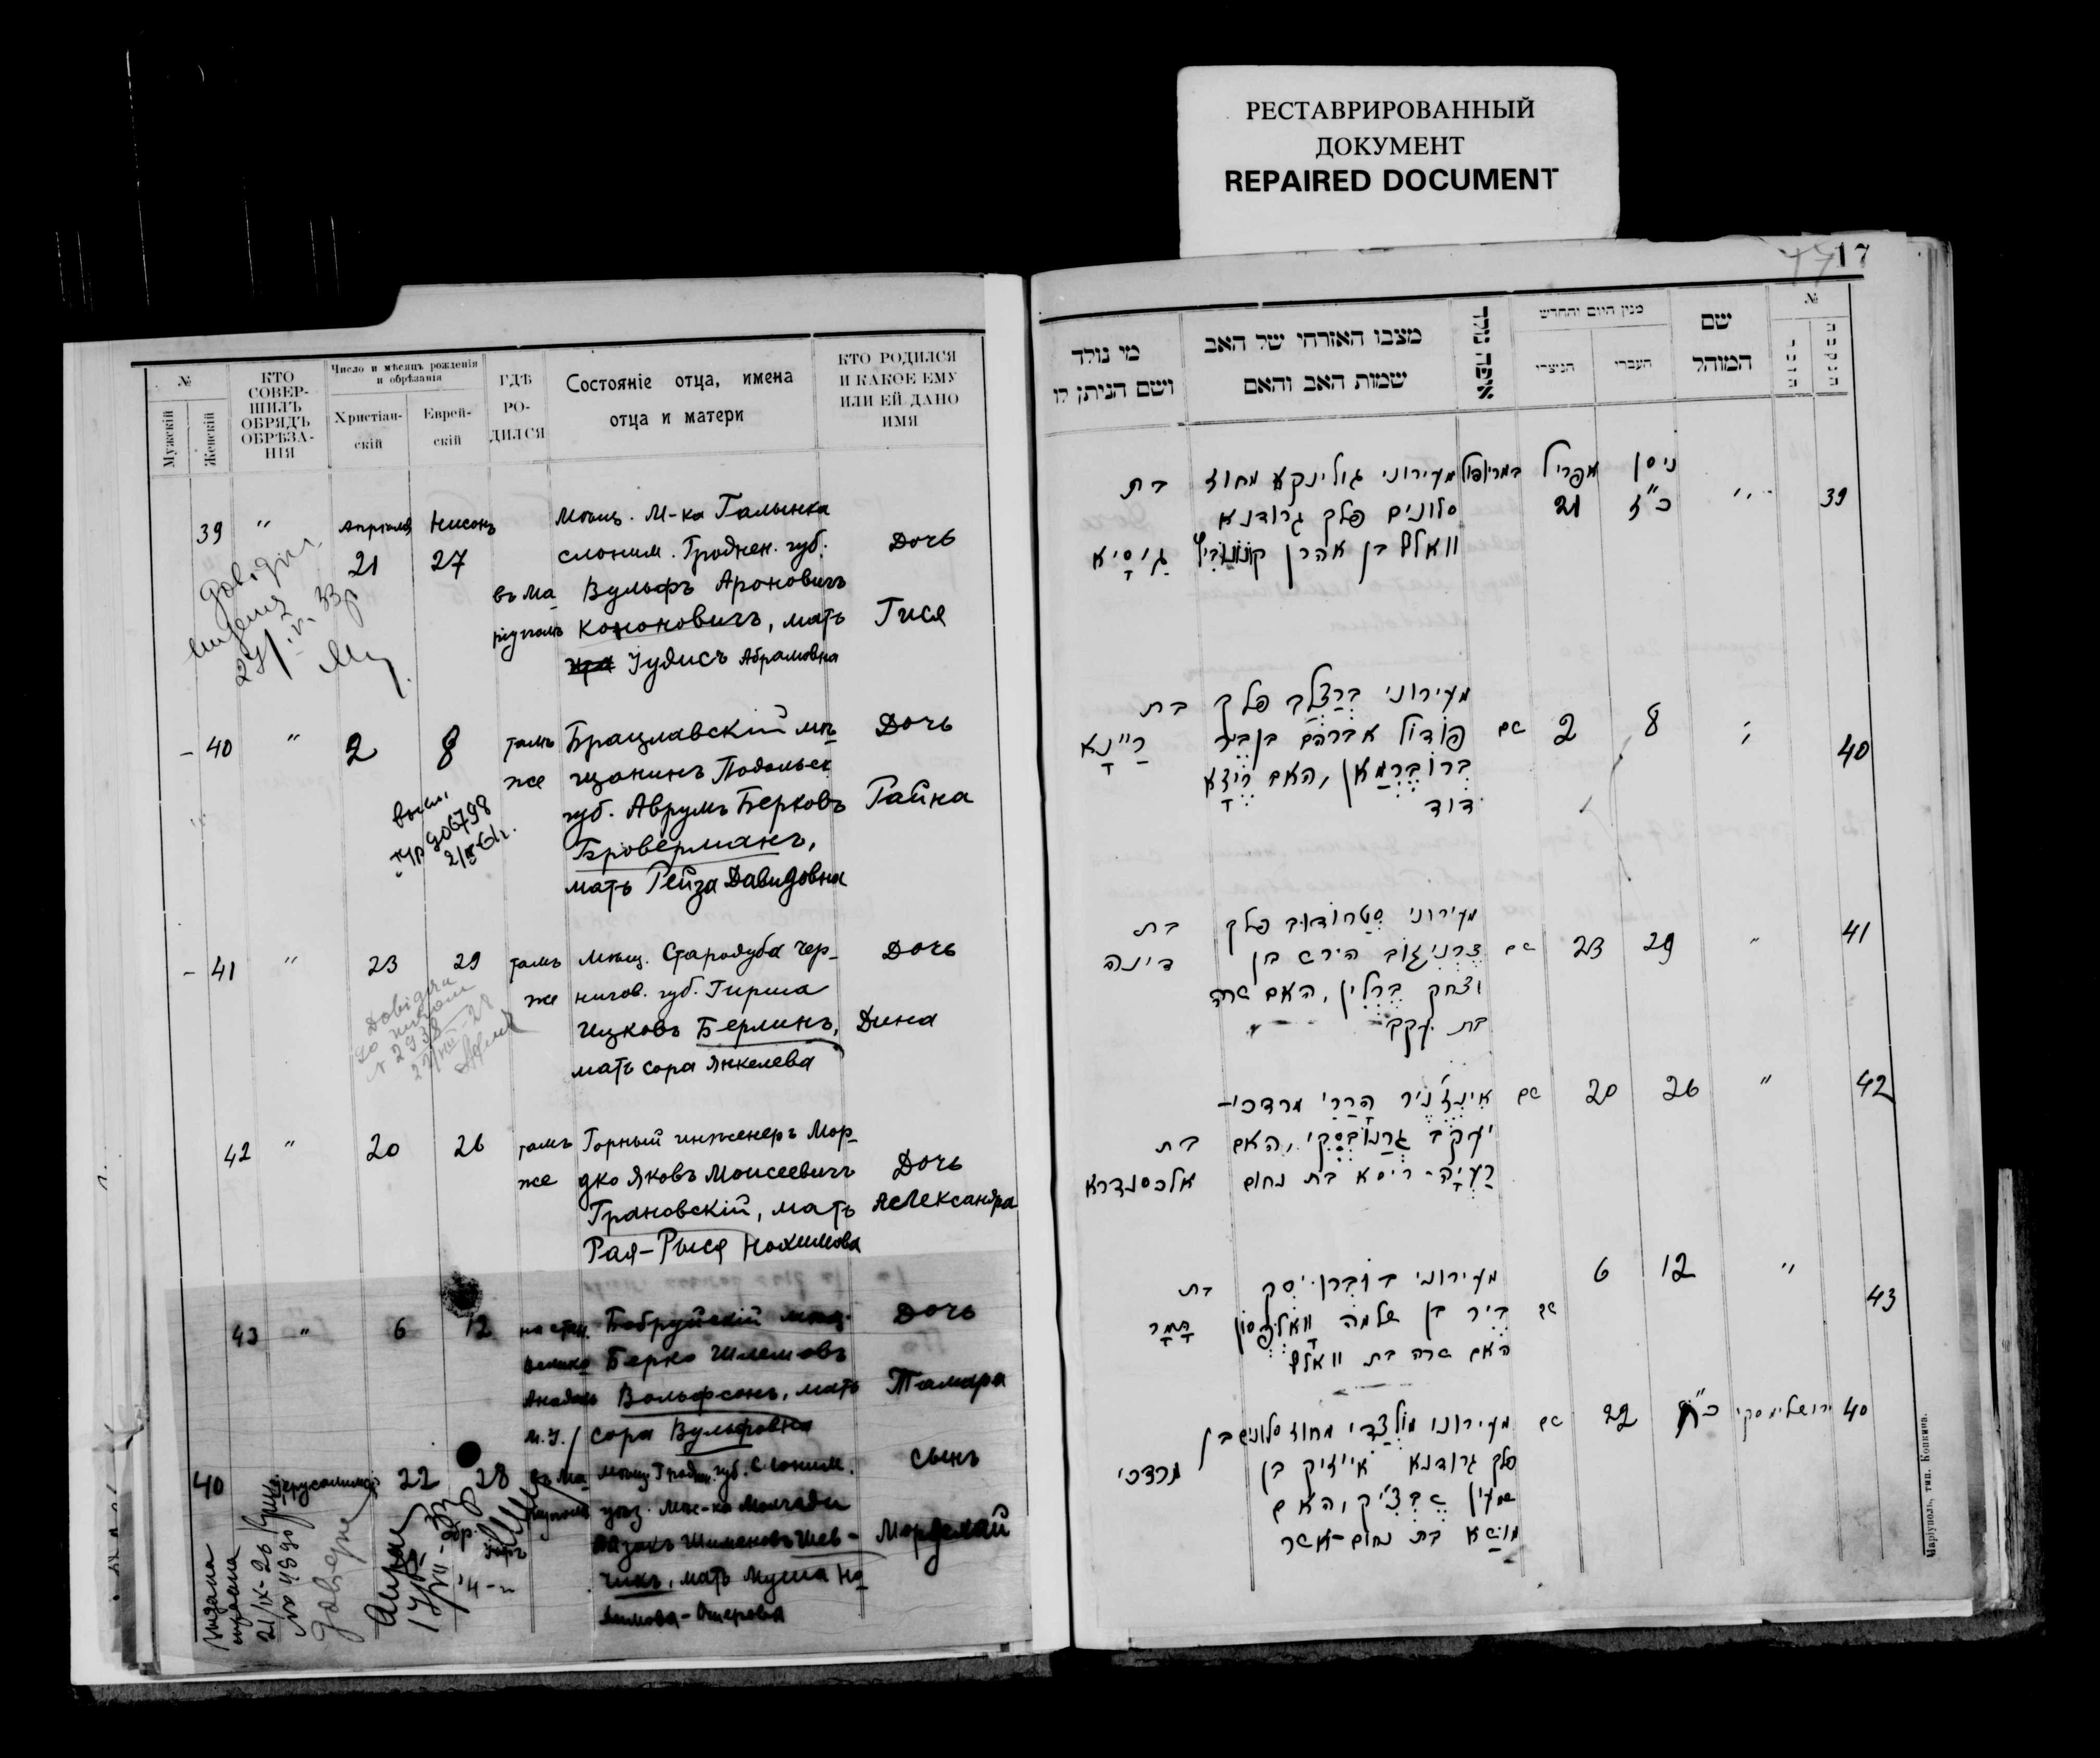 РЕСТАВРИРОВАННЫЙ
ДОКУМЕНТ
REPAIRED DOCUMENT
№
Мужскій
Женскій
КТО
СОВЕР-
ШИЛЪ
ОБРЯДЪ
ОБРѢЗА-
НІЯ
Число и мѣсяцъ рожденія
и обрѣзанія
Христіан-
скій
Еврей-
скій
ГДѢ
РО-
ДИЛСЯ
Состояніе отца, имена
отца и матери
КТО РОДИЛСЯ
И КАКОЕ ЕМУ
ИЛИ ЕЙ ДАНО
ИМЯ
39 "
Апрѣля
21
Нисонъ
27
въ Ма-
ріуполѣ
Мѣщ. М-ка Галынка
слоним. Гроднен. губ.
Вульфъ Ароновичъ
Кононовичъ, мать
Іудись Абрамовна
Дочь
Гися
- 40 " 2 8
тамъ
же
Брацлавскій мѣ-
щанинъ Подольск.
губ. Аврумъ Берковъ
Броверманъ,
мать Рейза Давидовна
Дочь
Райна
- 41 " 23 29
тамъ
же
мѣщ. Стародуба Чер-
нигов. губ. Гирша
Ицковъ Берлинъ,
мать Сора Янкелева
Дочь
Дина
42 " 20 26
тамъ
же
Горный инженеръ Мор-
дко Яковъ Моисеевичъ
Грановскій, мать
Рая-Рыся Нохимова
Дочь
Александра
43 " 6 12
на стан.
Бобруйскій мѣщ.
Берко Шлемовъ
Вольфсонъ, мать
Сора Вульфовна
Дочь
Тамара
40
22 28
въ Ма-
ріуполѣ
мѣщ. Гродн. губ. Слоним.
уѣз. мѣс-ка Молчади
Айзикъ Шимоновъ Шев-
чикъ, мать Муша На-
химова-Ошерова
Сынъ
Мордехай
17
№
שם
המוהל
מנין היום והחדש
העברי
הנוצרי
איפה נולד
מצבו האזרחי של האב
שמות האב והאם
מי נולד
ושם הניתן לו
39
ניסן
כ"ז
אפריל
21
במריופול
מעירוני גולינקא מחוז
סלונים פלך גרודנא
וואלף בן אהרן
בת
גיסיא
40
8 2 שם
מעירוני ברצלב פלך
פודול אברהם בן בער
ברוברמאן, האם רייזא
דוד
בת
ריינא
41 " 29 23 שם
מעירוני סטרודוב פלך
צרניגוב הירש בן
יצחק ברלין, האם שרה
בת יעקב
בת
דינה
42 " 26 20 שם
אינז'ניר הררי מרדכי-
יעקב גרנובסקי, האם
רעיה-ריסא בת נחום
בת
אלכסנדרא
43 " 12 6 שם
מעירוני בוברויסק
בער בן שלמה וואלפסון
האם שרה בת וואלף
בת
תמר
40
ירושלימסקי
כ"ח
22 שם
מעירוני מולצדי מחוז סלונים
פלך גרודנא אייזיק בן
שמעון שבצ'יק, האם
מושא בת נחום-אשר
בן
מרדכי
Маріуполь, тип. Копкина.